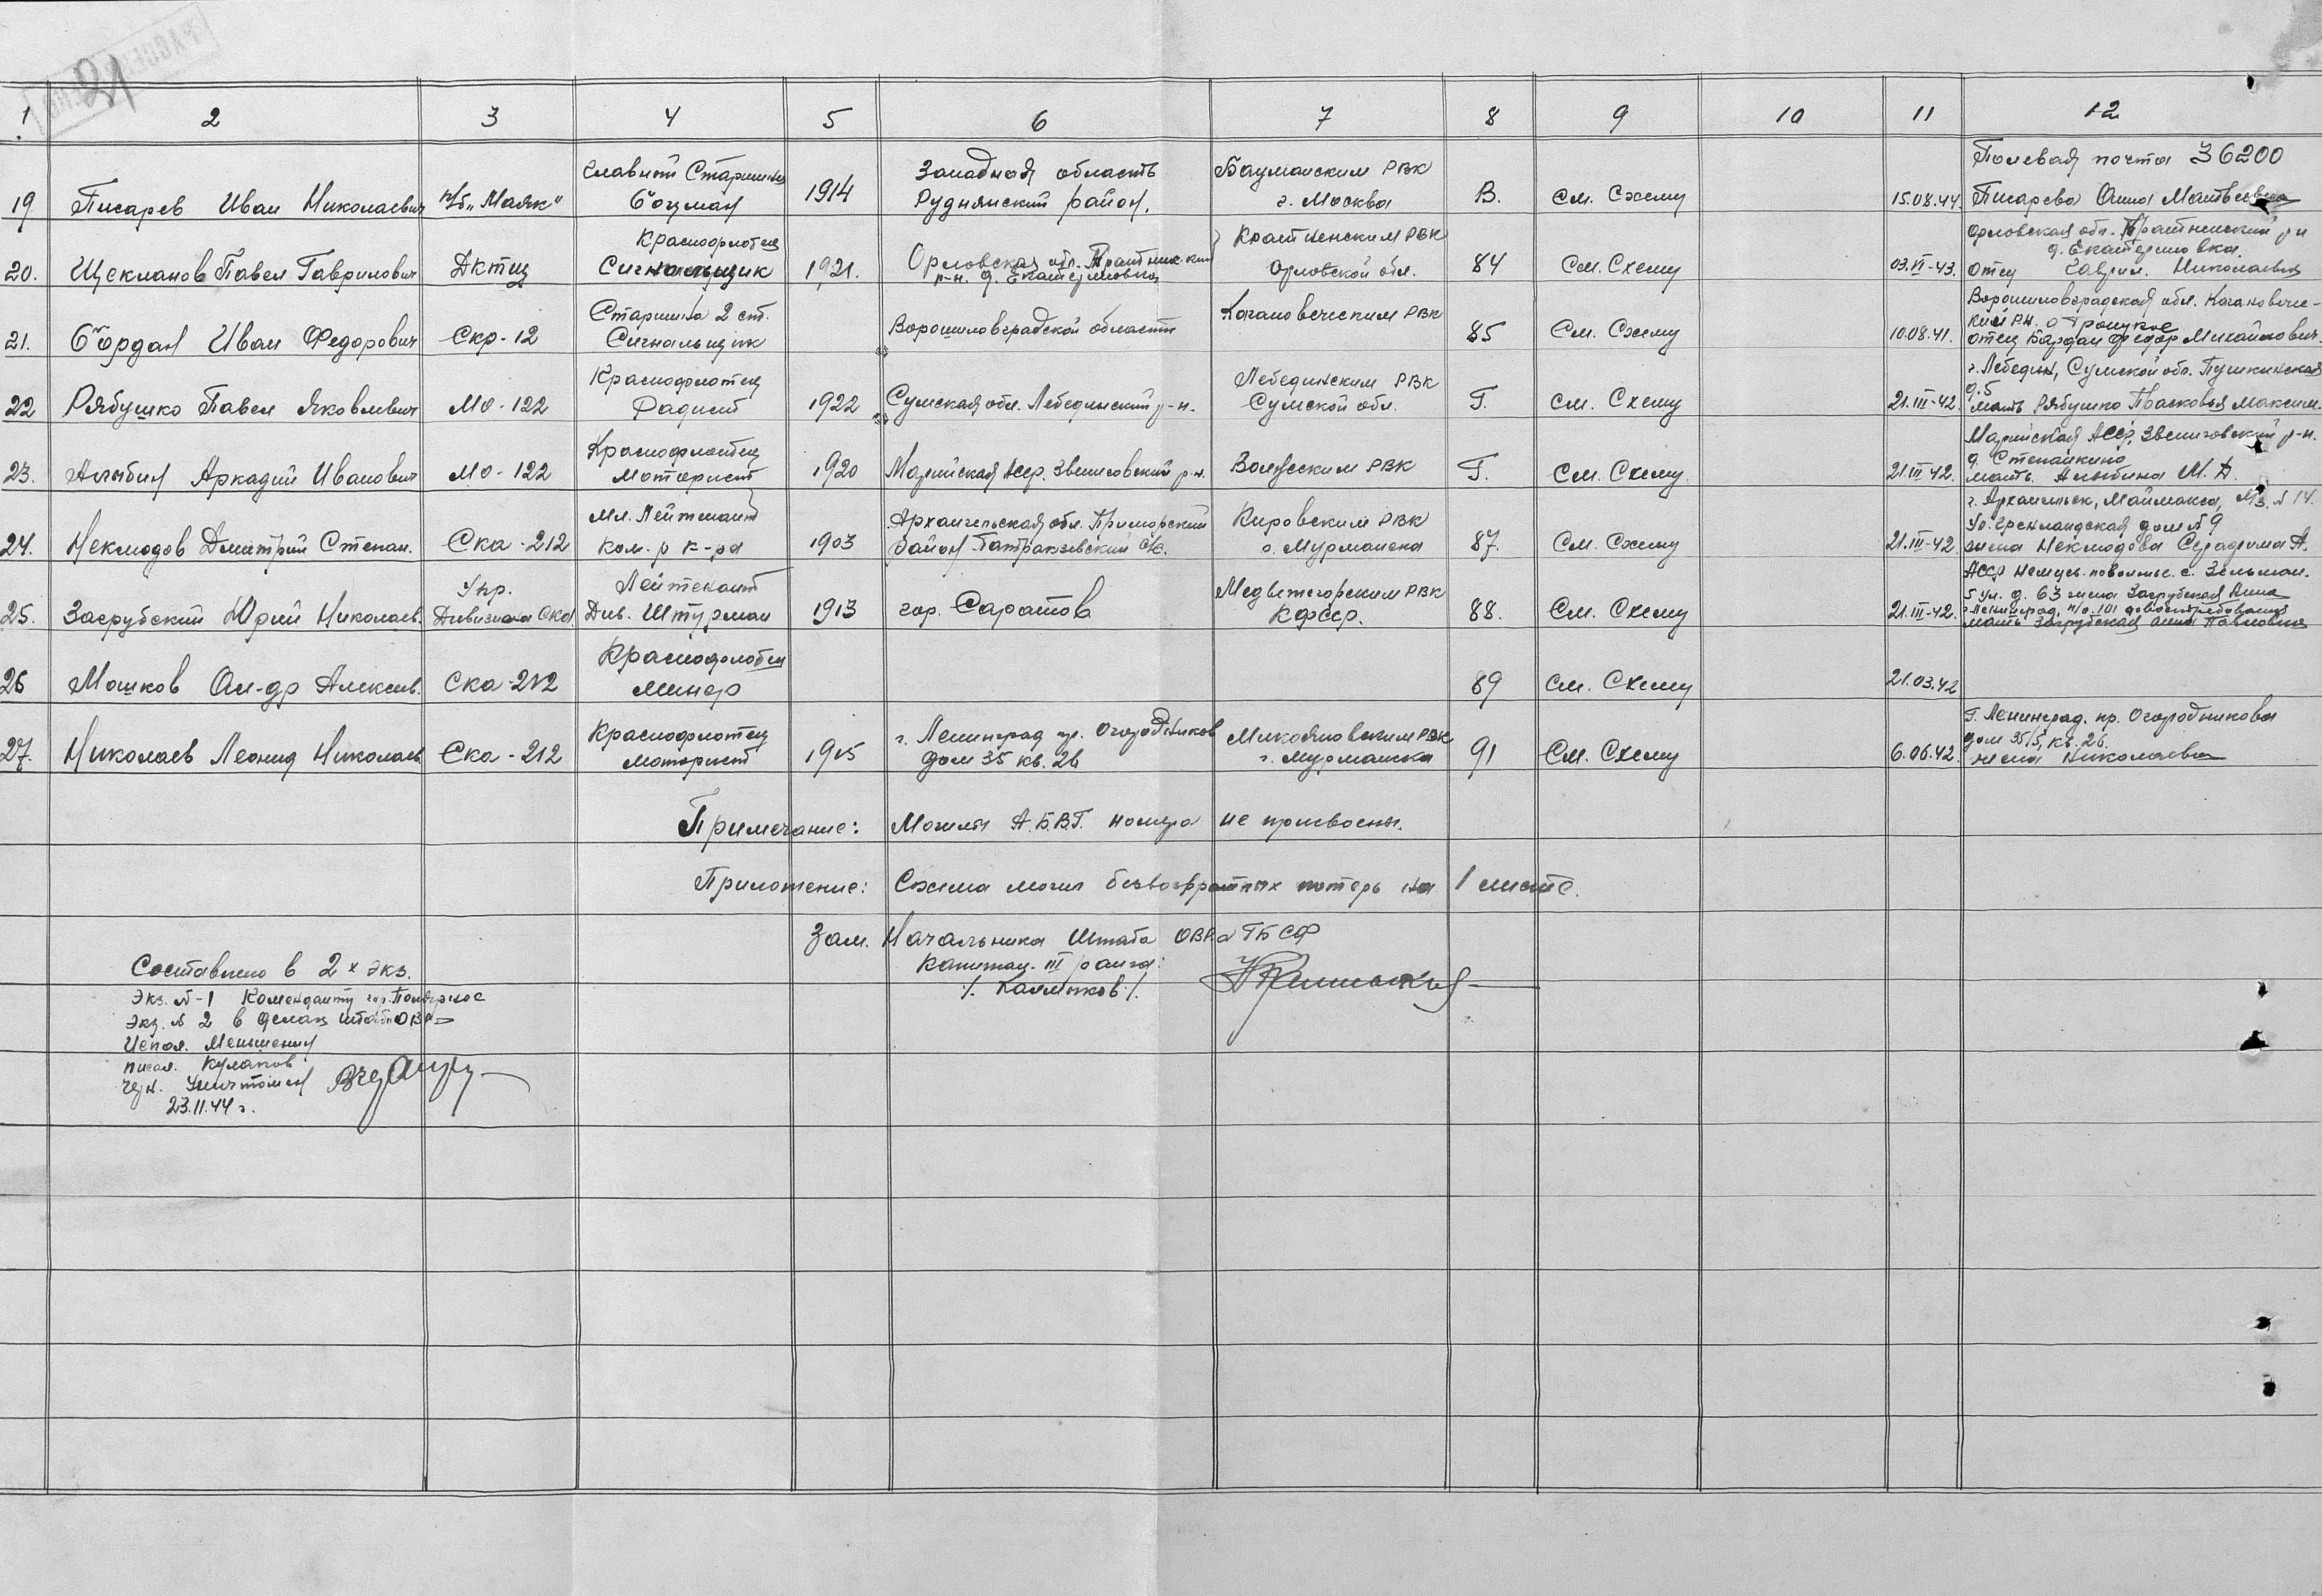 21
1 2 3 4 5 6 7 8 9 10 11 12
19 Писарев Иван Николаевич п/б „Маяк“ Главный Старшина Боцман 1914 Западная область Руднянский район. Бауманским РВК г. Москва В. См. Схему 15.08.44. Полевая почта 36200 Писарева Анна Матвеевна
20. Щекланов Павел Гаврилович Краснофлотец Сигнальщик 1921. Орловская обл. р-н. д. Екатериновка РВК Орловской обл. 84 См. Схему 03.VI-43. Орловская обл. р-н д. Екатериновка. отец Гаврил. Николаевич
21. Бордан Иван Федорович Скр-12 Старшина 2 ст. Сигнальщик Ворошиловградской области Кагановическим РВК 85 См. Схему 10.08.41. Ворошиловградская обл. Кагановический р-н. с Троицкое отец Бардан Федор Михайлович.
22 Рябушко Павел Яковлевич МО-122 Краснофлотец Радист 1922 Сумская обл. Лебединский р-н. Лебединским РВК Сумской обл. Г. См. Схему 21.III-42. г. Лебедин, Сумской обл. Пушкинская д. 5 мать Рябушко Прасковья Максим.
23. Аркадий Иванович МО-122 Краснофлотец Моторист 1920 Марийская Асср. Звениговский р-н. РВК Г. См. Схему 21.III-42. Марийская АССР, Звениговский р-н. д. Степанкино мать. М. А.
24. Неклюдов Дмитрий Степан. Ска-212 Мл. Лейтенант ком. р к-ра 1903 Архангельская обл. Приморский район с/с. Кировским РВК г. Мурманска 87. См. Схему 21.III-42. г. Архангельск, Маймакса, № 14. ул. Гренландская дом № 9 жена Неклюдова Серафима А.
25. Загрубский Юрий Николаев. Упр. Дивизиона Ска. Лейтенант Див. Штурман 1913 гор. Саратов Медвежегорским РВК КФССР. 88. См. Схему 21.III-42. АССР Немцев-поволжье. с. Зельман. 5 ул. д. 63 жена Загрубская г. Ленинград, п/о. 101 довостребования мать Загрубская Анна Павловна
26 Машков Ал-др Алексеев. Ска-212 Краснофлотец Минер 89 См. Схему 21.03.42
27. Николаев Леонид Николаев. Ска-212 Краснофлотец Моторист 1915 г. Ленинград пр. Огородников дом 35 кв. 26 Микояновским РВК г. Мурманска 91 См. Схему 6.06.42. Г. Ленинград. пр. Огородникова дом 35/5, кв. 26. жена Николаева
Примечание: Могилы А.Б.В.Г. номера не присвоены.
Приложение: Схема могил безвозвратных потерь на 1 листе.
Зам. Начальника Штаба ОВРа ГБ СФ
Капитан-III ранга:
/. Калмыков ./.
Составлено в 2 х экз.
Экз. № -1 Коменданту гор. Полярное
Экз. № 2 в делах штаба ОВРа
Испол. Меньшенин
писал. Кулаков
черн. Уничтожен
23.11.44 г.